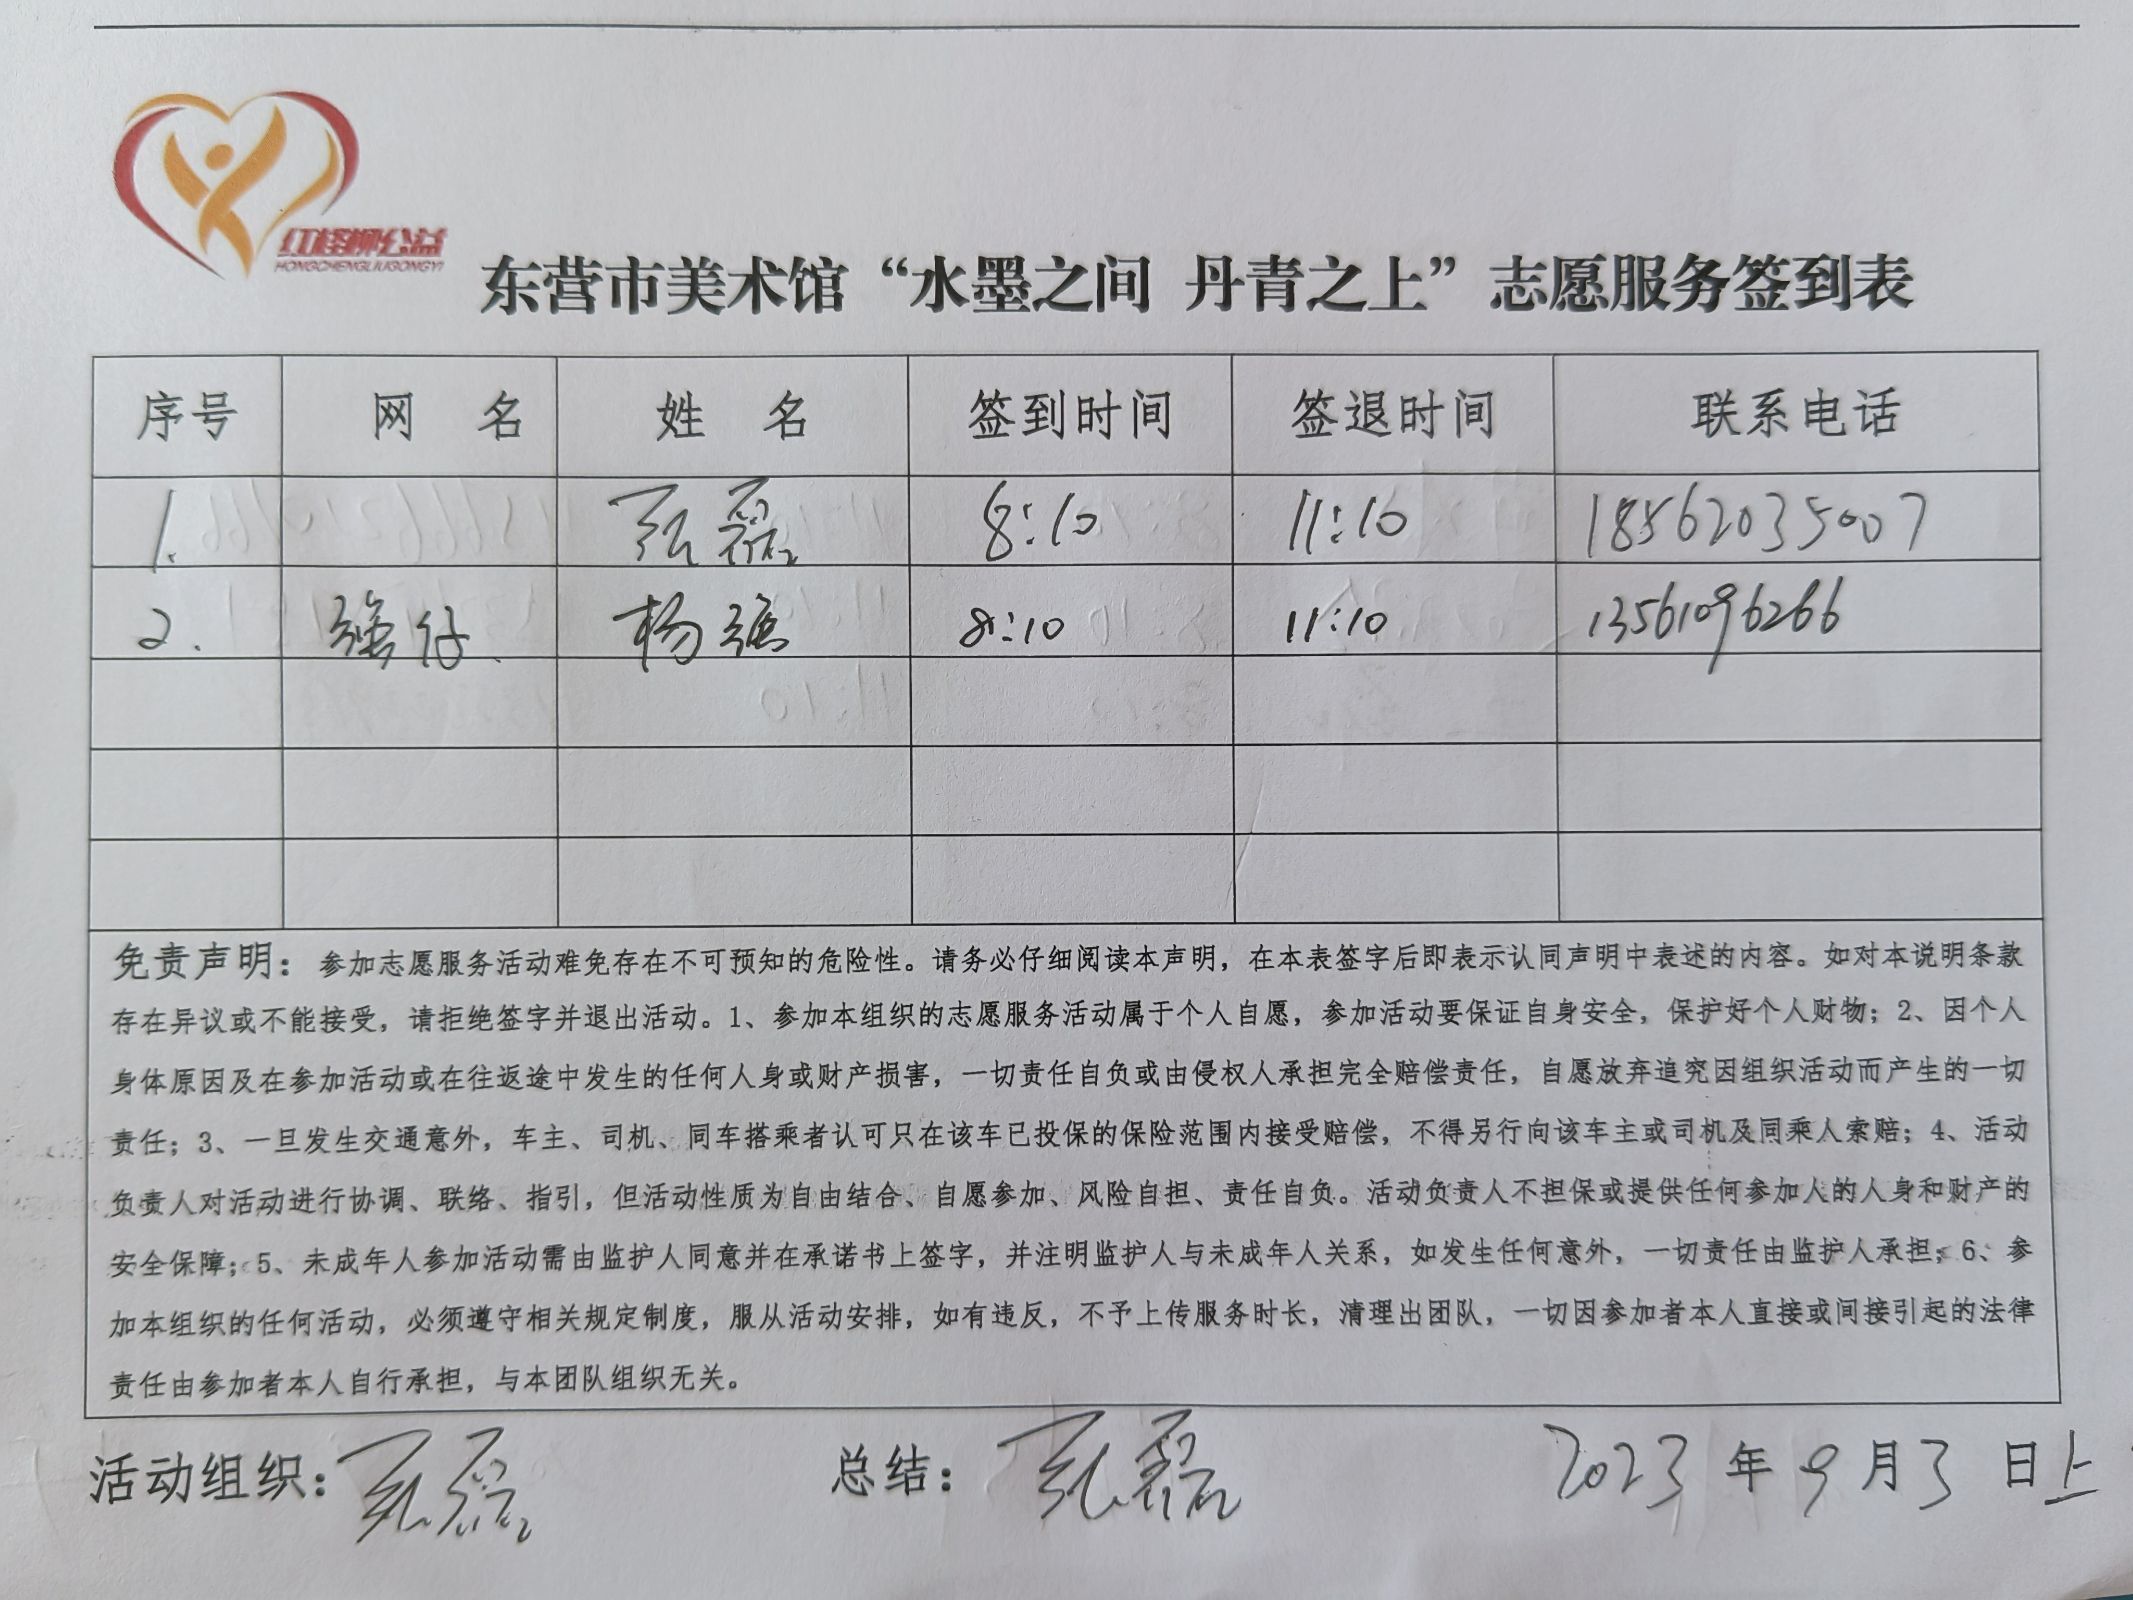 红柽柳公益
HONGCHENGLIUGONGYI
东营市美术馆“水墨之间 丹青之上”志愿服务签到表
序号 网 名 姓 名 签到时间 签退时间 联系电话
1. 张磊 8:10 11:10 18562035007
2. 强仔 杨强 8:10 11:10 13561096266
免责声明：参加志愿服务活动难免存在不可预知的危险性。请务必仔细阅读本声明，在本表签字后即表示认同声明中表述的内容。如对本说明条款
存在异议或不能接受，请拒绝签字并退出活动。1、参加本组织的志愿服务活动属于个人自愿，参加活动要保证自身安全，保护好个人财物；2、因个人
身体原因及在参加活动或在往返途中发生的任何人身或财产损害，一切责任自负或由侵权人承担完全赔偿责任，自愿放弃追究因组织活动而产生的一切
责任；3、一旦发生交通意外，车主、司机、同车搭乘者认可只在该车已投保的保险范围内接受赔偿，不得另行向该车主或司机及同乘人索赔；4、活动
负责人对活动进行协调、联络、指引，但活动性质为自由结合、自愿参加、风险自担、责任自负。活动负责人不担保或提供任何参加人的人身和财产的
安全保障；5、未成年人参加活动需由监护人同意并在承诺书上签字，并注明监护人与未成年人关系，如发生任何意外，一切责任由监护人承担；6、参
加本组织的任何活动，必须遵守相关规定制度，服从活动安排，如有违反，不予上传服务时长，清理出团队，一切因参加者本人直接或间接引起的法律
责任由参加者本人自行承担，与本团队组织无关。
活动组织：张磊 总结：张磊 2023年9月3日上